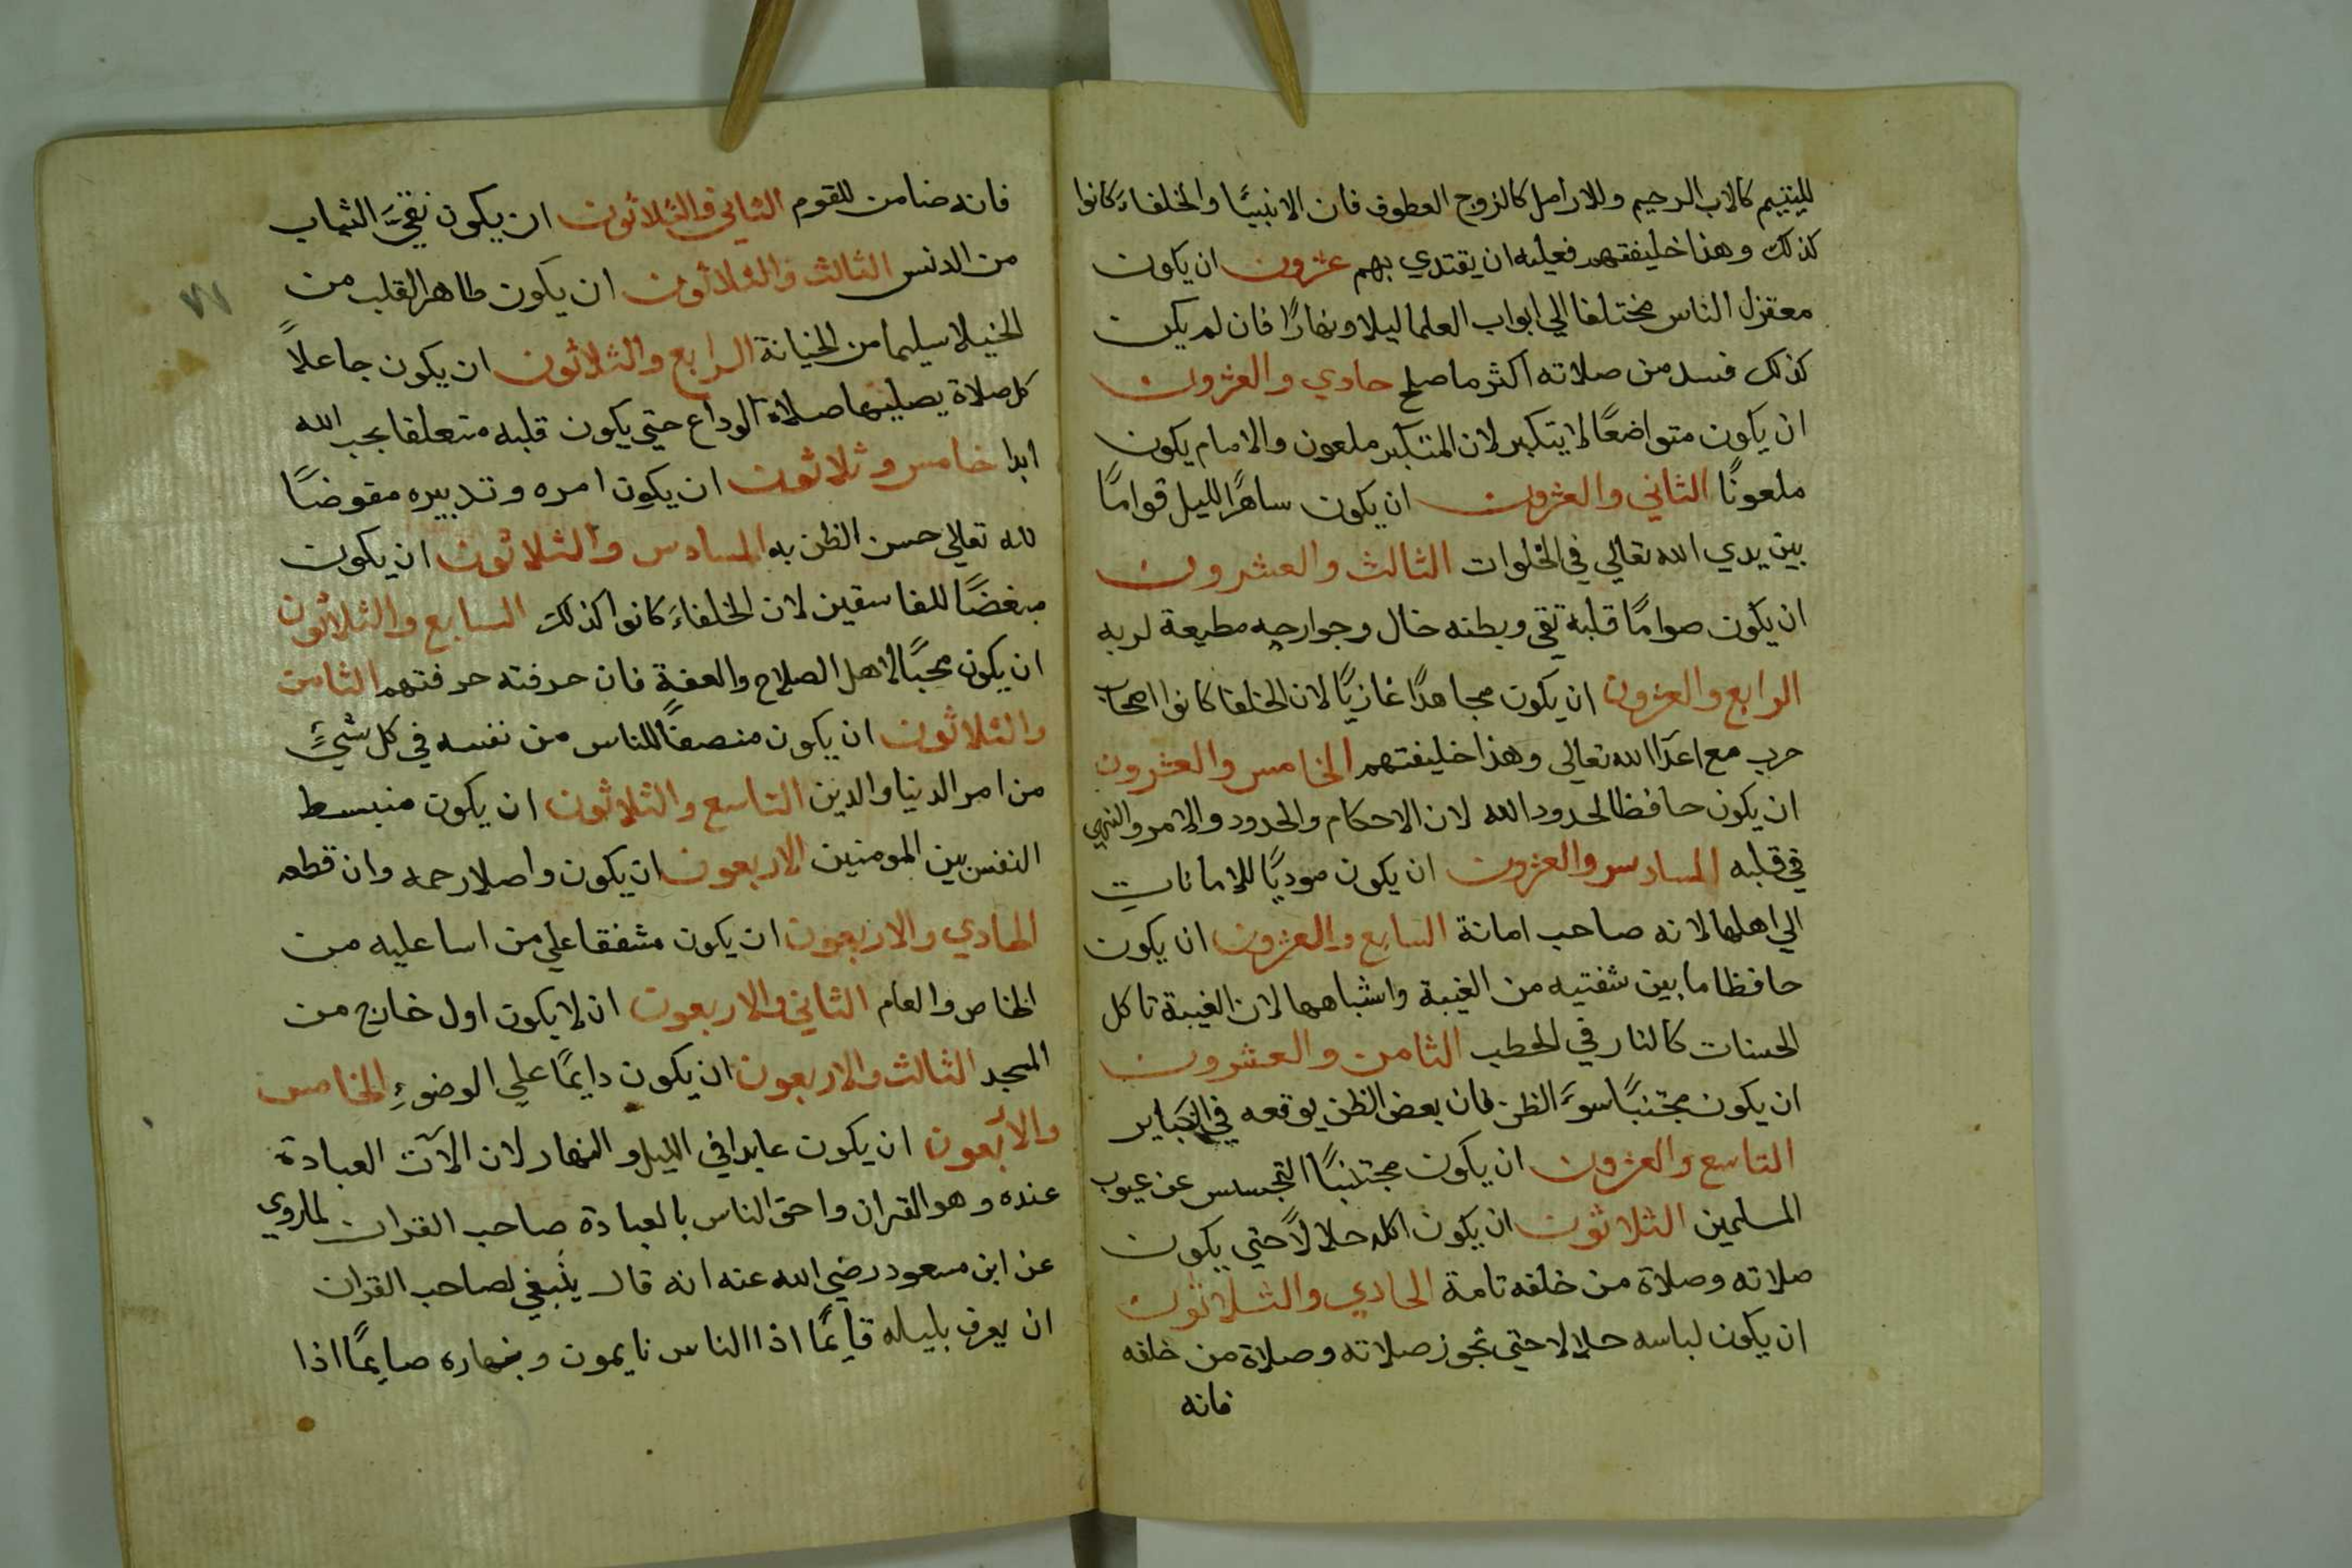 لليتيم كالاب الرحيم وللارامل كالزوج العطوف فان الانبيا والخلفاء كانوا
كذلك وهذا خليفتهم فعليه ان يقتدي بهم عشرون ان يكون
معتزل الناس مختلفا الي ابواب العلما ليلا ونهارا فان لم يكن
كذلك فسد من صلاته اكثر ما صلح حادي والعشرون
ان يكون متواضعًا لا يتكبر لان المتكبر ملعون والامام يكون
ملعونًا الثاني والعشرون ان يكون ساهرًا لليل قوامًا
بين يدي الله تعالي في الخلوات الثالث والعشرون
ان يكون صوامًا قلبه تقي وبطنه خال وجوارحه مطيعة لربه
الرابع والعشرون ان يكون مجاهدًا غازيًا لان الخلفا كانوا اصحاب
حرب مع اعدا الله تعالي وهذا خليفتهم الخامس والعشرون
ان يكون حافظا لحدود الله لان الاحكام والحدود والامر والنهي
في قلبه السادس والعشرون ان يكون موديًا للامانات
الي اهلها لانه صاحب امانة السابع والعشرون ان يكون
حافظا ما بين شفتيه من الغيبة واشباهها لان الغيبة تاكل
الحسنات كالنار في الحطب الثامن والعشرون
ان يكون مجتنبًا سوء الظن فان بعض الظن يوقعه في الكباير
التاسع والعشرون ان يكون مجتنبًا التجسس عن عيوب
المسلمين الثلاثون ان يكون اكله حلالاً حتي يكون
صلاته وصلاة من خلفه تامة الحادي والثلاثون
ان يكون لباسه حلالا حتي تجوز صلاته وصلاة من خلفه
فانه
٧١
فانه ضامن للقوم الثاني والثلاثون ان يكون نقيَّ الثياب
من الدنس الثالث والثلاثون ان يكون طاهر القلب من
الخيلا سليما من الخيانة الرابع والثلاثون ان يكون جاعلاً
كل صلاة يصليها صلاة الوداع حتي يكون قلبه متعلقا بحب الله
ابدا خامس وثلاثون ان يكون امره وتدبيره مفوضًا
لله تعالي حسن الظن به السادس والثلاثون ان يكون
مبغضًا للفاسقين لان الخلفاء كانوا كذلك السابع والثلاثون
ان يكون محبًا لاهل الصلاح والعفة فان حرفته حرفتهم الثامن
والثلاثون ان يكون منصفًا للناس من نفسه في كل شيءٍ
من امر الدنيا والدين التاسع والثلاثون ان يكون منبسط
النفس بين المومنين الاربعون ان يكون واصلا رحمه وان قطعه
الحادي والاربعون ان يكون مشفقا علي من اسا عليه من
الخاص والعام الثاني والاربعون ان لا يكون اول خارج من
المسجد الثالث والاربعون ان يكون دايمًا علي الوضوءِ الخامس
والأبعون ان يكون عابدا في الليل والنهار لان الآت العبادة
عنده وهو القران واحق الناس بالعبادة صاحب القران لما روي
عن ابن مسعود رضي الله عنه انه قال ينبغي لصاحب القران
ان يعرف بليله قايمًا اذا الناس نايمون وبنهاره صايمًا اذا